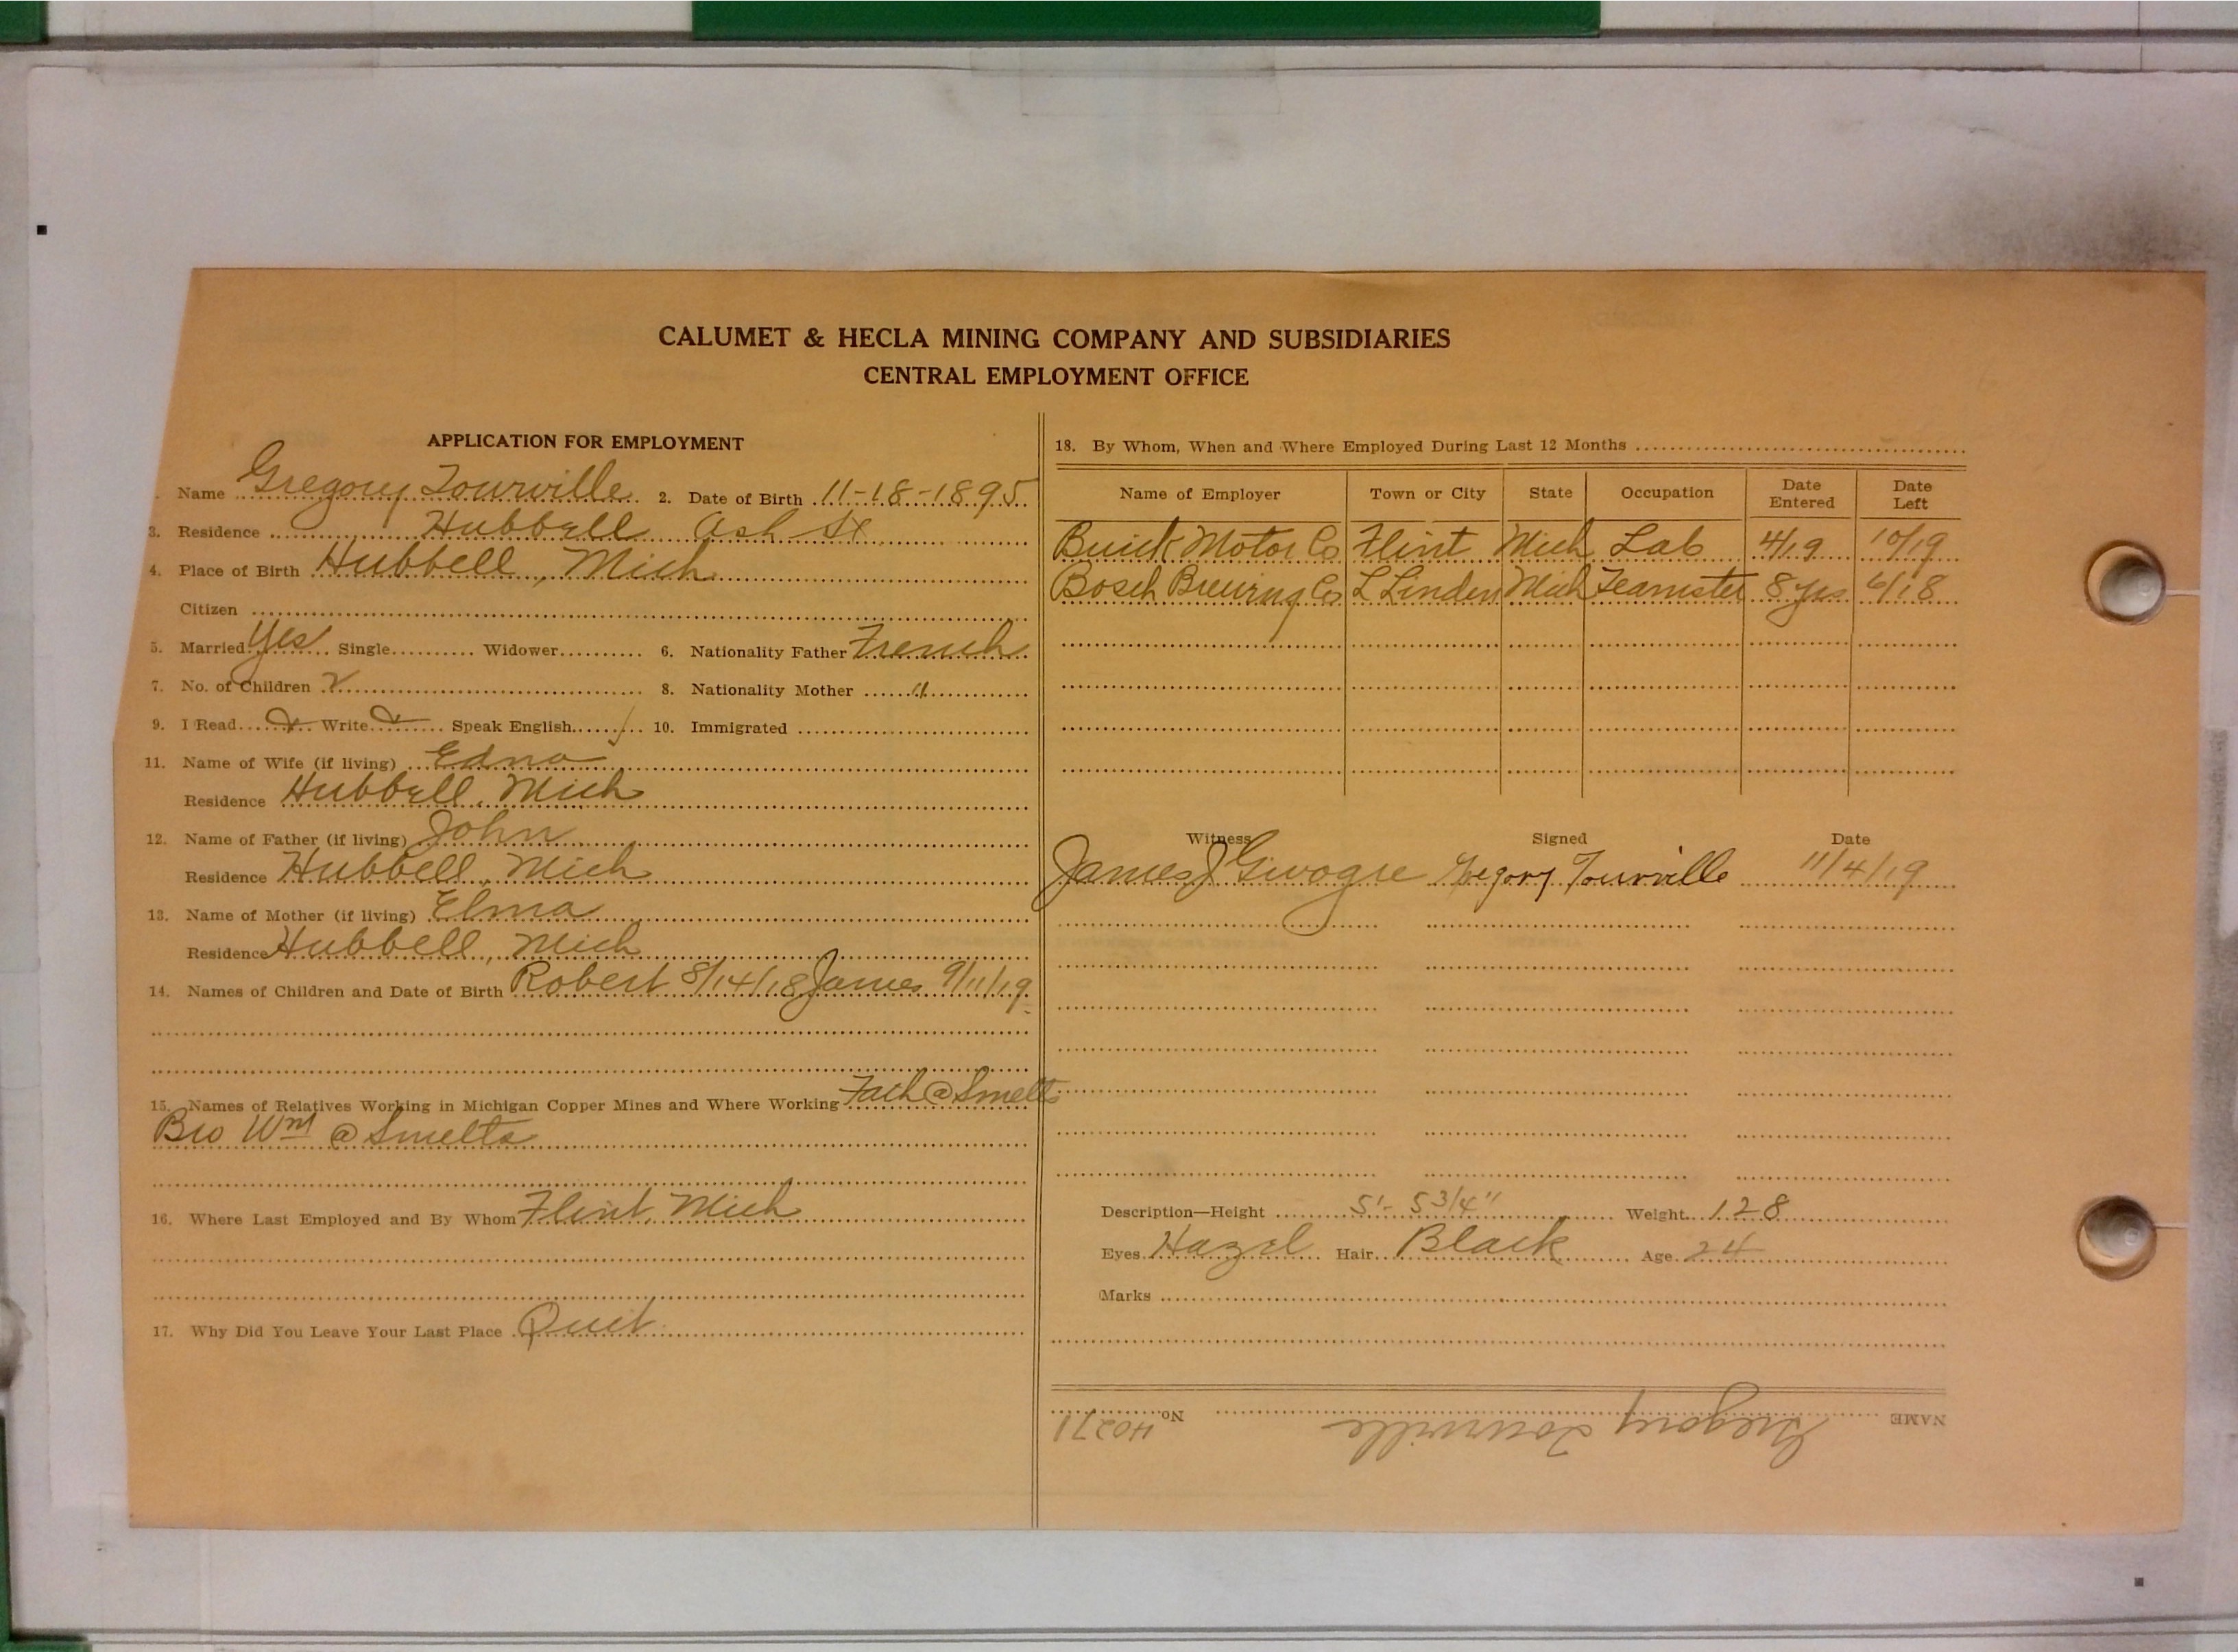 CALUMET & HECLA MINING COMPANY AND SUBSIDIARIES
CENTRAL EMPLOYMENT OFFICE
APPLICATION FOR EMPLOYMENT
Name Gregory Tourville 2. Date of Birth 11-18-1895
3. Residence Hubbell Ash St
4. Place of Birth Hubbell, Mich
Citizen
5. Married Yes Single Widower 6. Nationality Father French
7. No. of Children 2 8. Nationality Mother "
9. I Read Write Speak English 10. Immigrated
11. Name of Wife (if living) Edna
Residence Hubbell, Mich
12. Name of Father (if living) John
Residence Hubbell, Mich
13. Name of Mother (if living) Elma
Residence Hubbell, Mich
14. Names of Children and Date of Birth Robert 8/14/18 James 9/11/19
15. Names of Relatives Working in Michigan Copper Mines and Where Working Fath @ Smelts
Bro Wm @ Smelts
16. Where Last Employed and By Whom Flint, Mich
17. Why Did You Leave Your Last Place Quit
18. By Whom, When and Where Employed During Last 12 Months
Name of Employer Town or City State Occupation Date Entered Date Left
Buick Motor Co Flint Mich Lab 4/19 10/19
Bosch Brewing Co L Linden Mich Teamster 8 yrs 6/18
Witness Signed Date
James J Gregory Tourville 11/4/19
Description—Height 5'- 5 3/4" Weight 128
Eyes Hazel Hair Black Age 24
Marks
NAME Gregory Tourville No. 40271